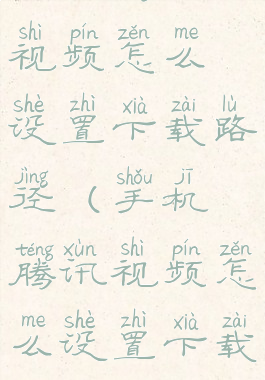 shì pín zěn me
视频怎么
shè zhì xià zài lù
设置下载路
jìng shǒu jī
径（手机
téng xùn shì pín zěn
腾讯视频怎
me shè zhì xià zài
么设置下载